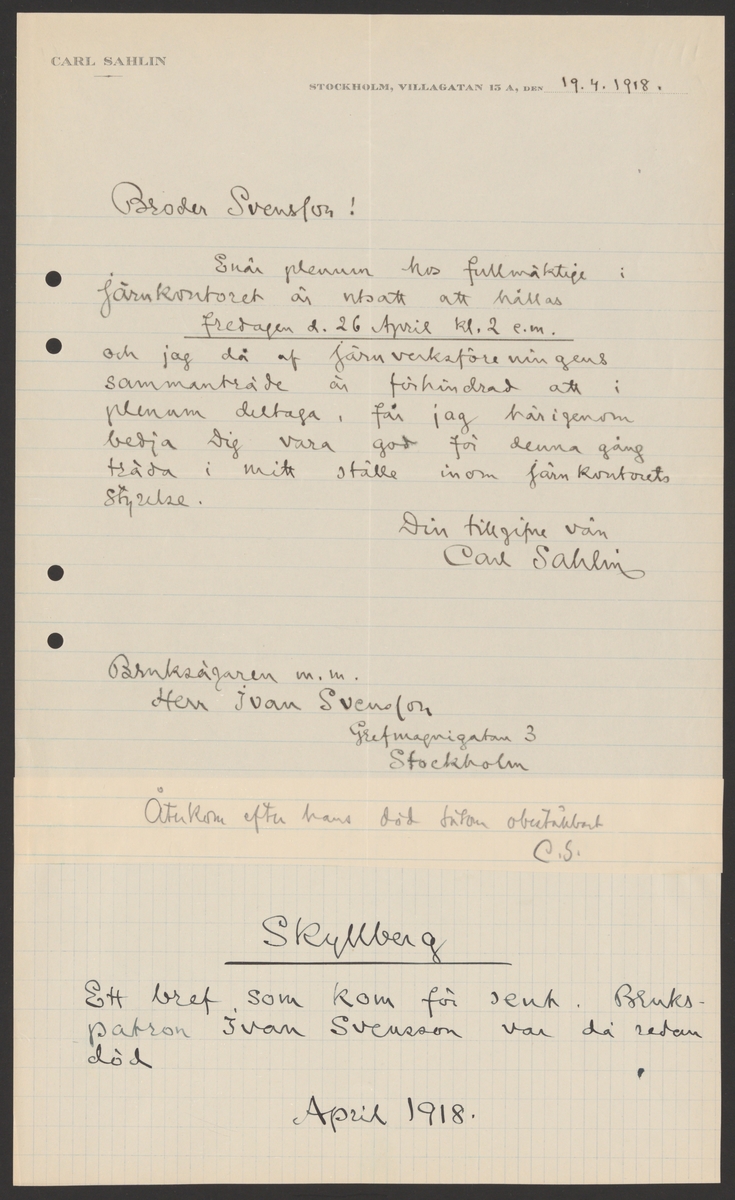 CARL SAHLIN
STOCKHOLM, VILLAGATAN 15 A, DEN 19.4.1918.
Broder Svensson!
Enär plenum hos fullmäktige i
Järnkontoret är utsatt att hållas
fredagen d. 26 April kl. 2 e.m.
och jag då af Järnverksföreningens
sammanträde är förhindrad att i
plenum deltaga, får jag härigenom
bedja Dig vara god för denna gång
träda i mitt ställe inom Järnkontorets
styrelse.
Din tillgifne vän
Carl Sahlin
Bruksägaren m.m.
Herr Ivan Svensson
Grefmagnigatan 3
Stockholm
Återkom efter hans död såsom obeställbart
C.S.
Skyllberg
Ett bref som kom för sent. Bruks-
patron Ivan Svensson var då redan
död
April 1918.